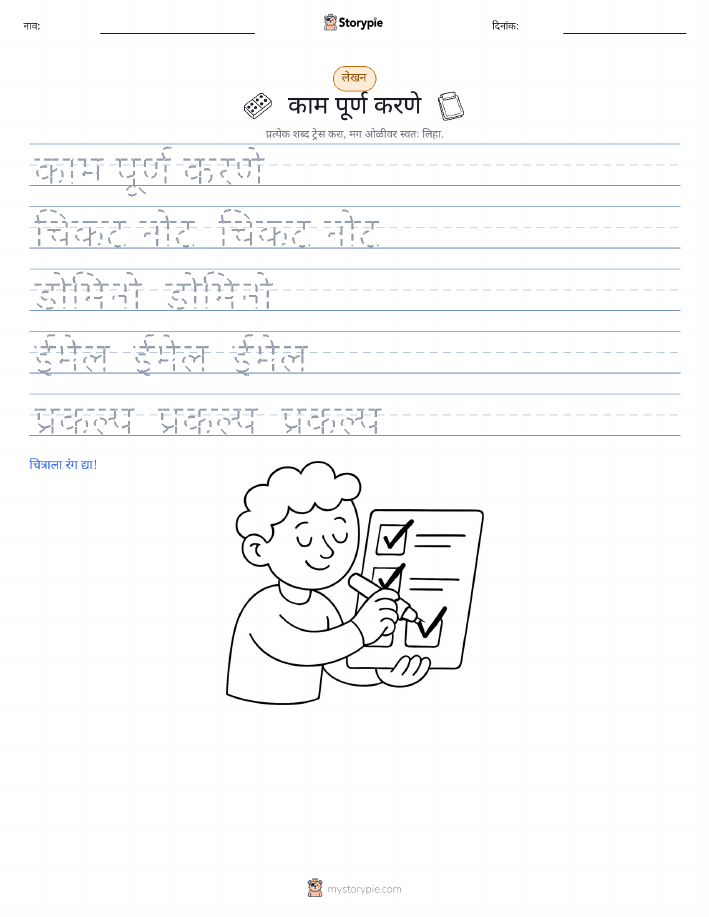 नाव:
Storypie
दिनांक:
लेखन
काम पूर्ण करणे
प्रत्येक शब्द ट्रेस करा, मग ओळीवर स्वतः लिहा.
काम पूर्ण करणे
चिकट नोट चिकट नोट
डोमिनो डोमिनो
ईमेल ईमेल ईमेल
प्रकल्प प्रकल्प प्रकल्प
चित्राला रंग द्या!
mystorypie.com